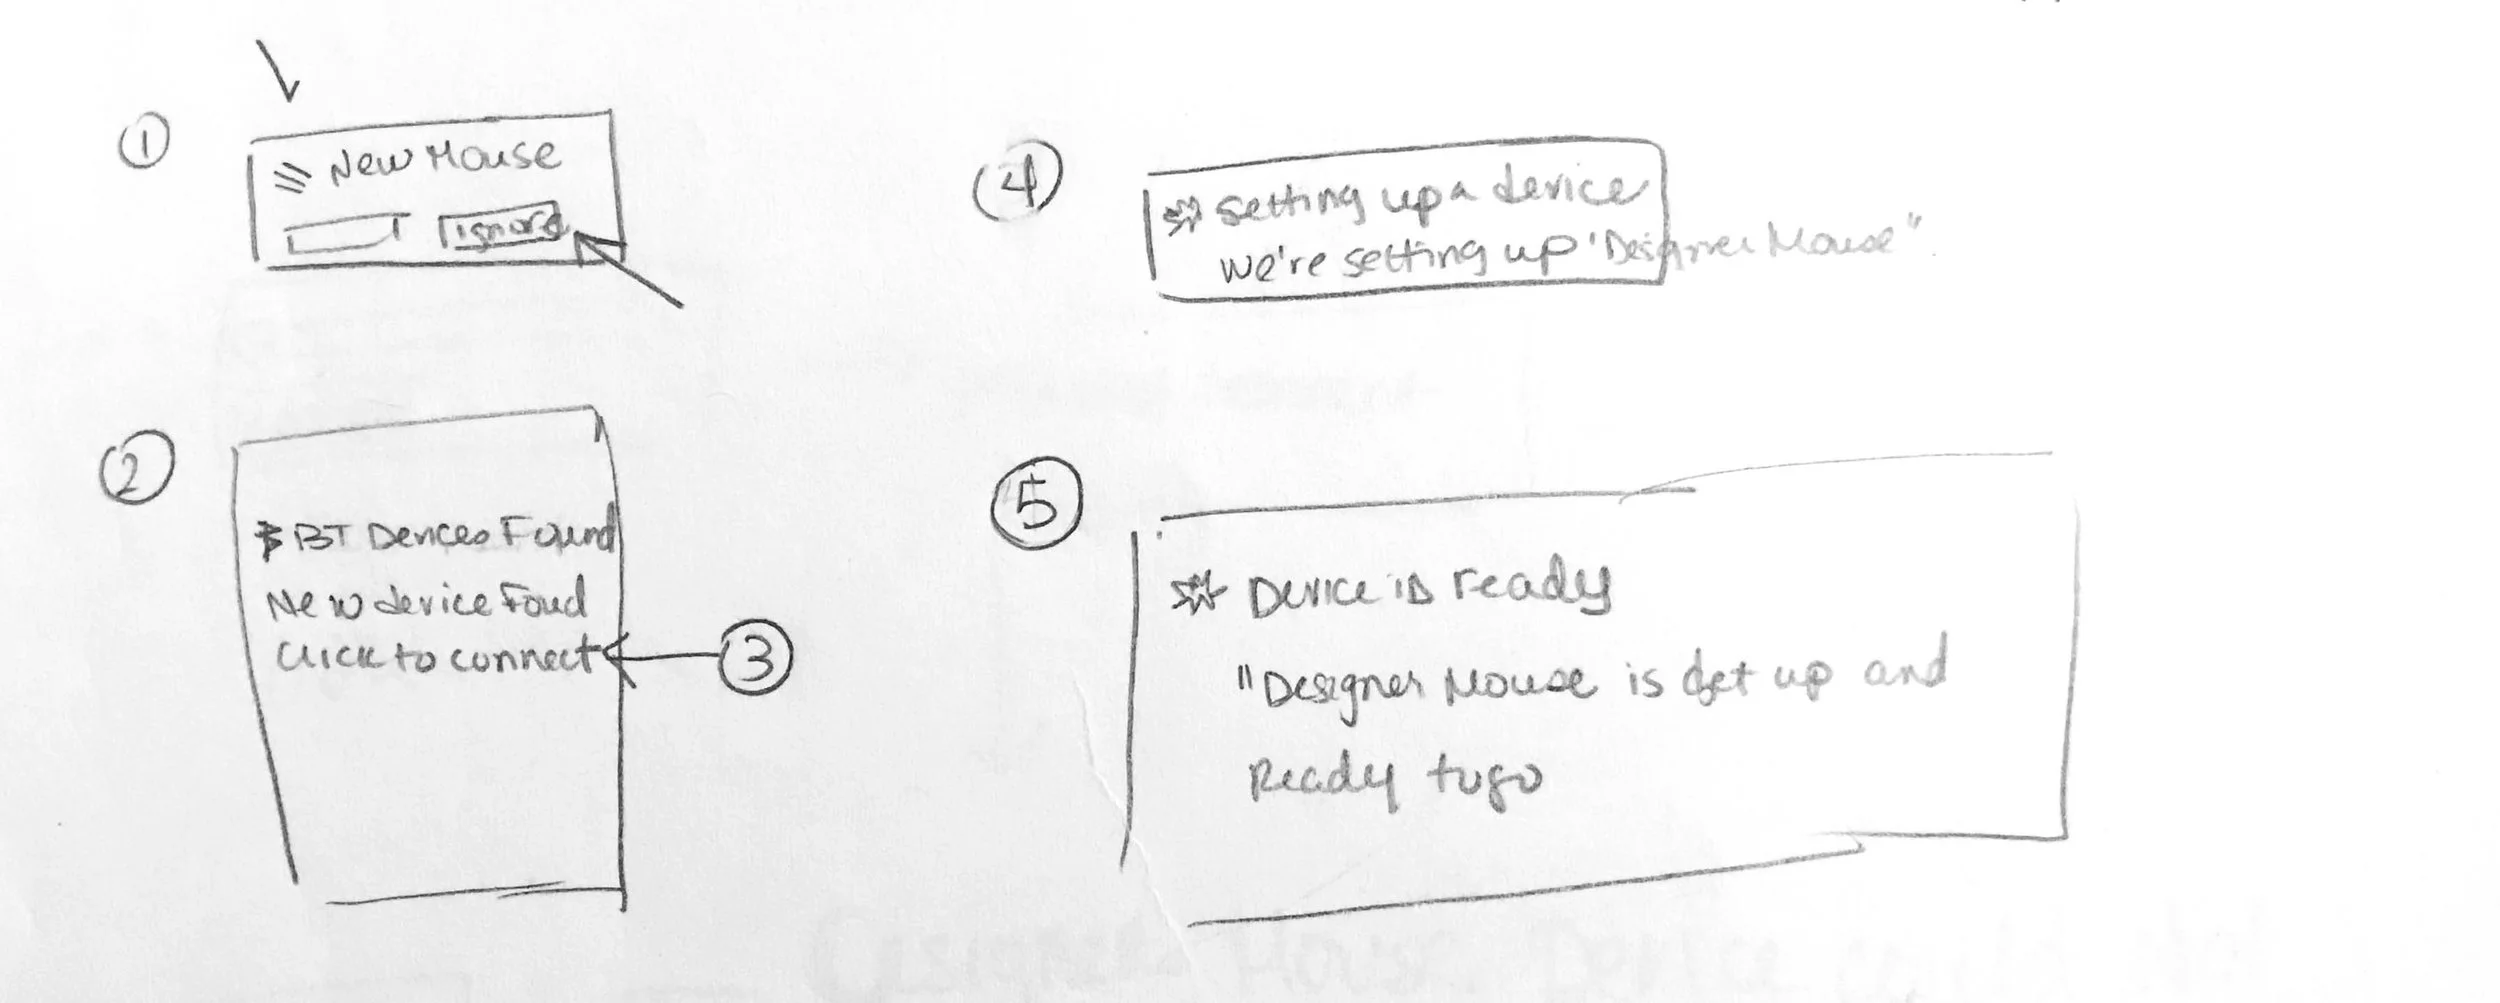 1
New Mouse
ignore
2
BT Devices Found
New device Foud
Click to connect
3
4
Setting up a device
we're setting up 'Designer Mouse"
5
Device is ready
"Designer Mouse is set up and
Ready to go